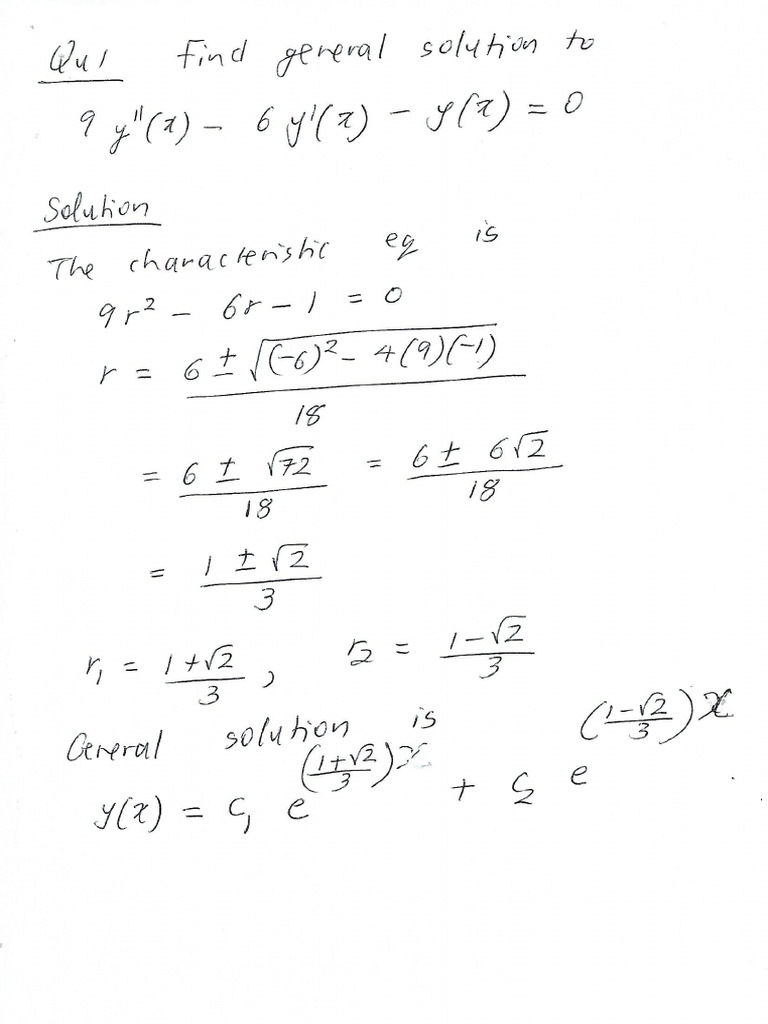 Qu1 Find general solution to
9 y''(x) - 6 y'(x) - y(x) = 0
Solution
The characteristic eq is
9r² - 6r - 1 = 0
r = (6 ± √((-6)² - 4(9)(-1))) / 18
= (6 ± √72) / 18 = (6 ± 6√2) / 18
= (1 ± √2) / 3
r₁ = (1+√2) / 3 , r₂ = (1-√2) / 3
General solution is
y(x) = c₁ e^(((1+√2)/3)x) + c₂ e^(((1-√2)/3)x)